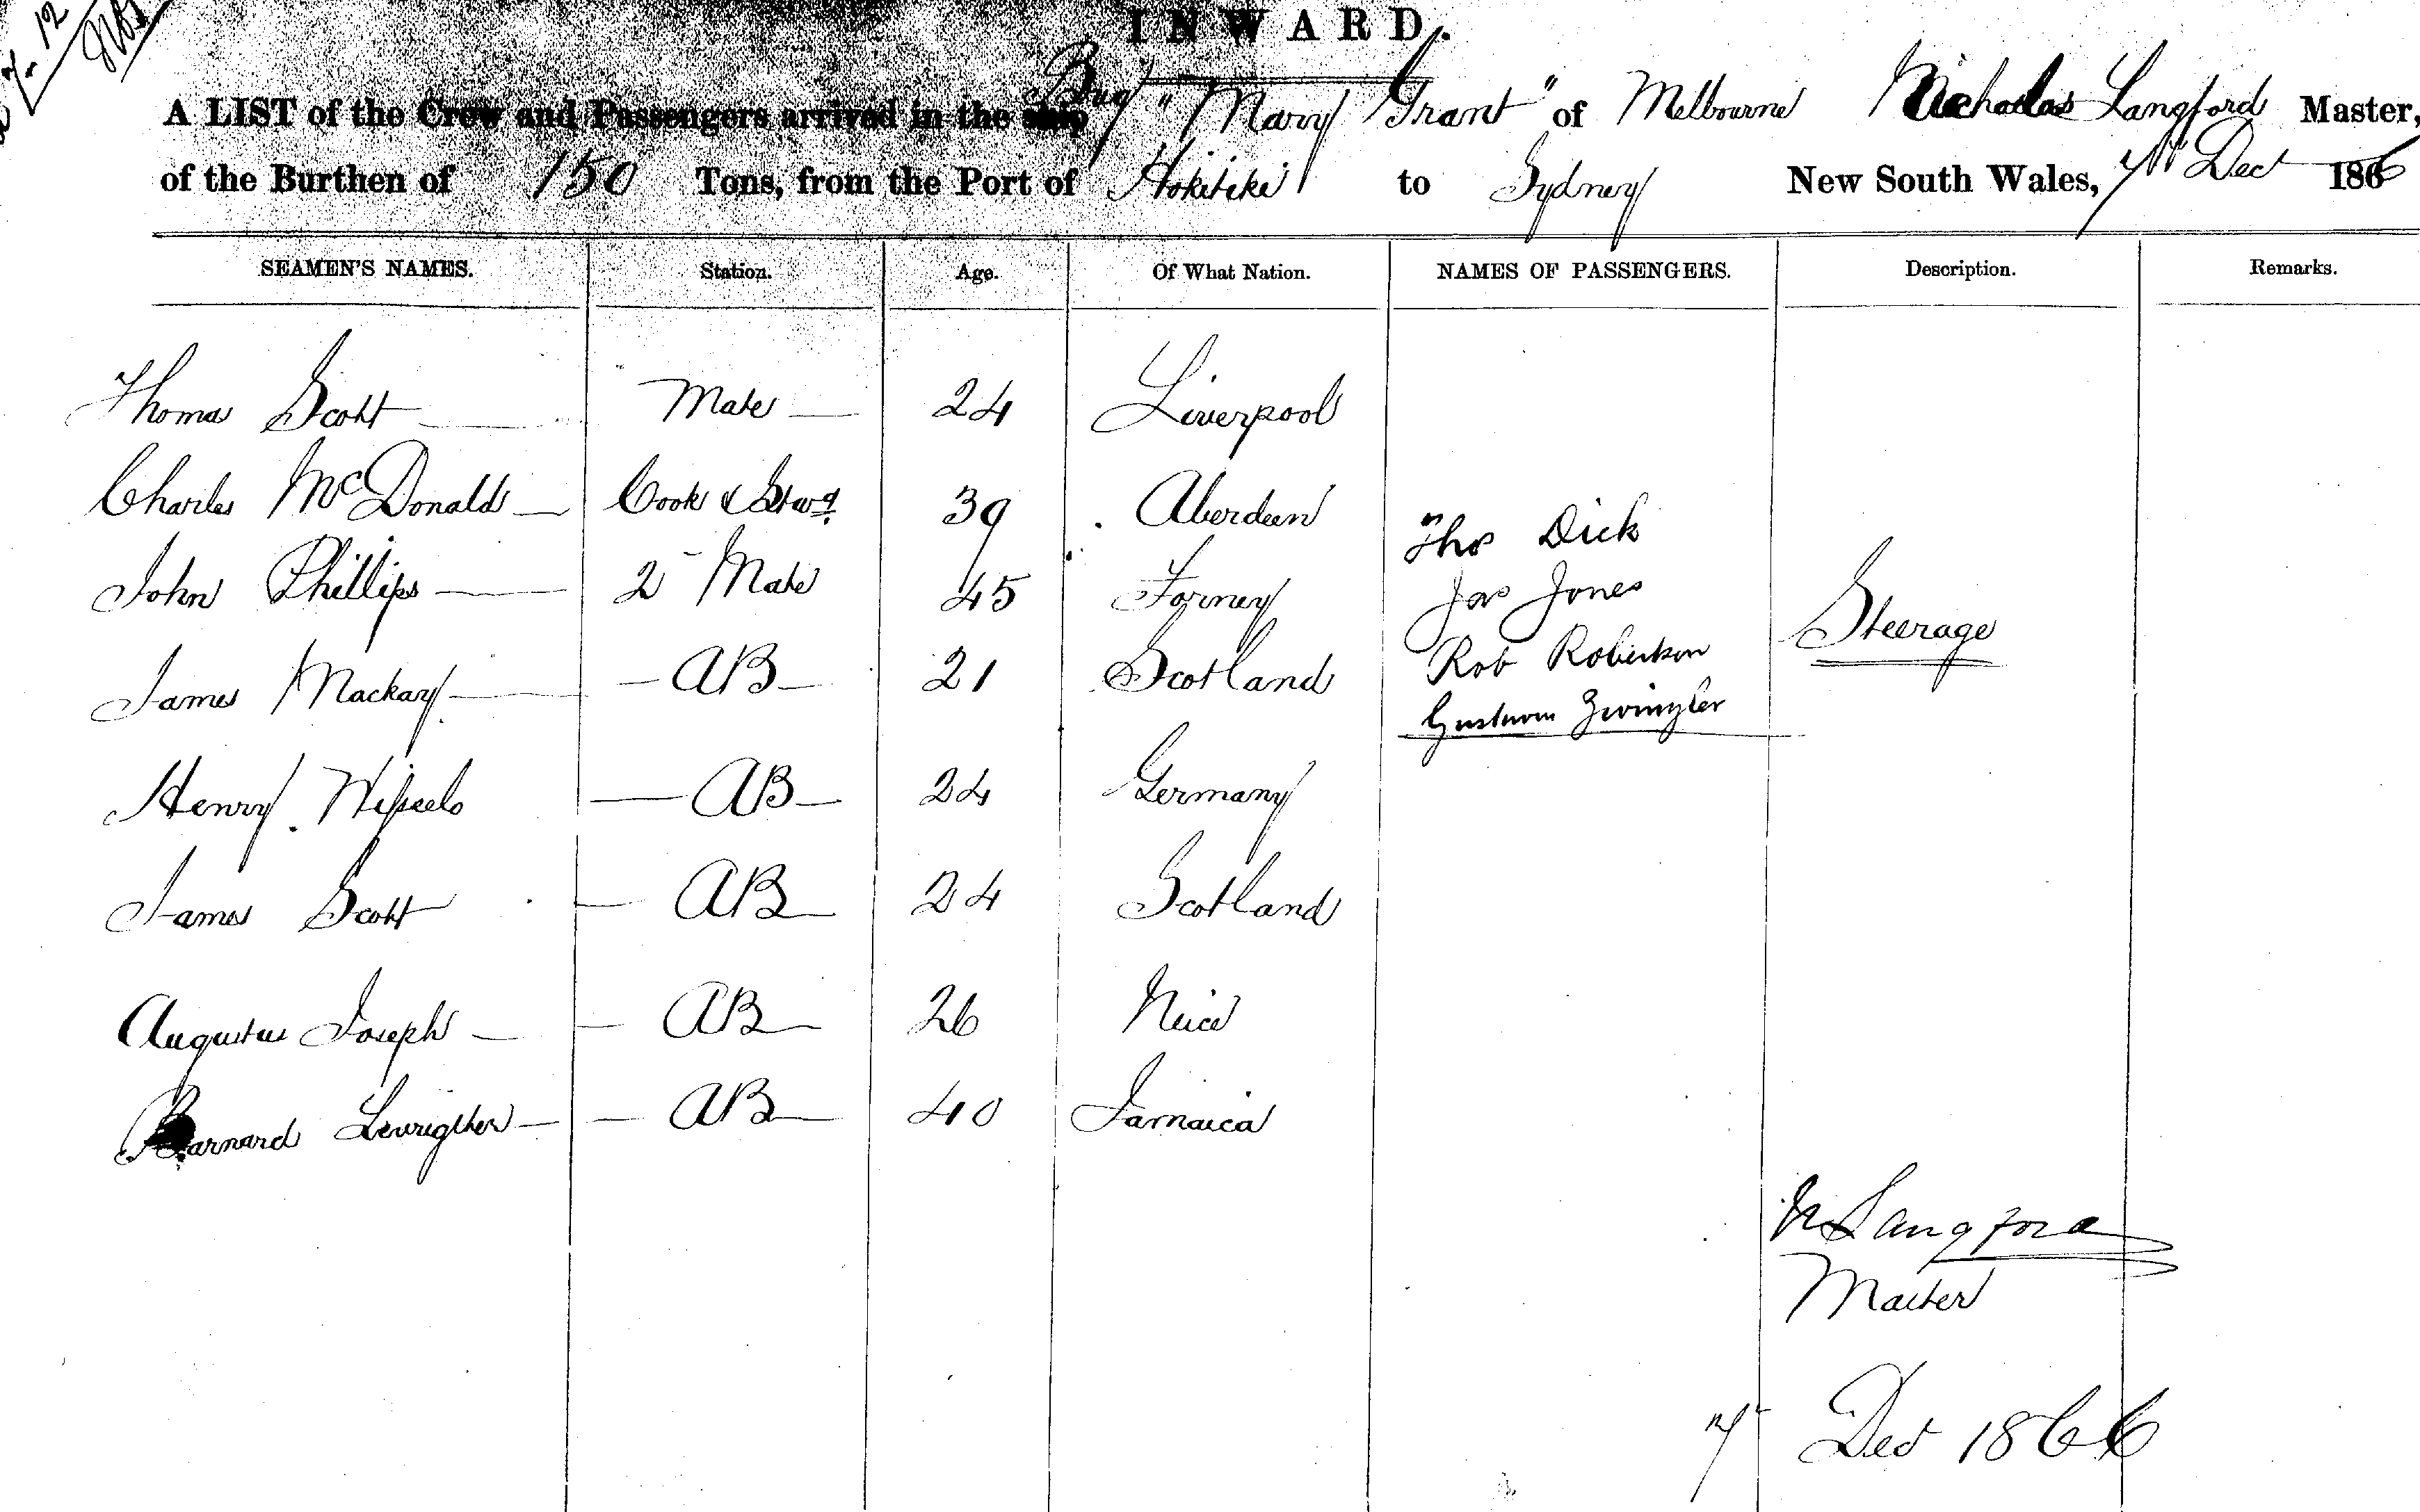 INWARD.
A LIST of the Crew and Passengers arrived in the ship Brig "Mary Grant" of Melbourne Nicholas Langford Master,
of the Burthen of 150 Tons, from the Port of Hokitika to Sydney New South Wales, 7th Dec 1866
SEAMEN'S NAMES. Station. Age. Of What Nation. NAMES OF PASSENGERS. Description. Remarks.
Thomas Scott Mate 24 Liverpool
Charles McDonald Cook & Stwd 39 Aberdeen
Thos Dick
John Phillips 2 Mate 45 Forney
Jas Jones
Steerage
James Mackay AB 21 Scotland
Rob Robertson
Gustave Zwingler
Henry Wessels AB 24 Germany
James Scott AB 24 Scotland
Augustus Joseph AB 26 Nice
Barnard AB 40 Jamaica
N Langford
Master
7th Dec 1866